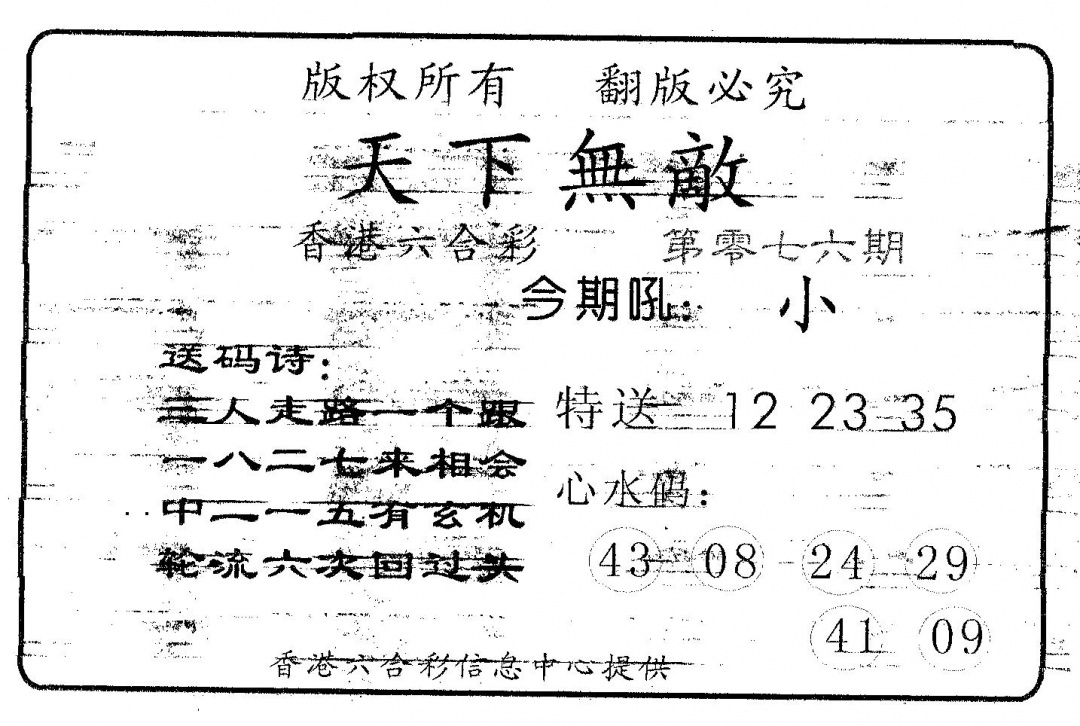 版权所有 翻版必究
天下無敵
香港六合彩 第零七六期
今期吼: 小
送码诗:
三人走路一个跟
一八二七来相会
中二一五有玄机
轮流六次回过头
特送 12 23 35
心水码:
43 08 24 29
41 09
香港六合彩信息中心提供